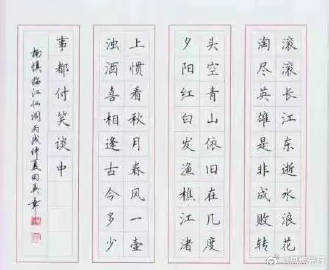 滚滚长江东逝水浪花
淘尽英雄是非成败转
头空青山依旧在几度
夕阳红白发渔樵江渚
上惯看秋月春风一壶
浊酒喜相逢古今多少
事都付笑谈中
杨慎临江仙词丙戌仲夏田英章